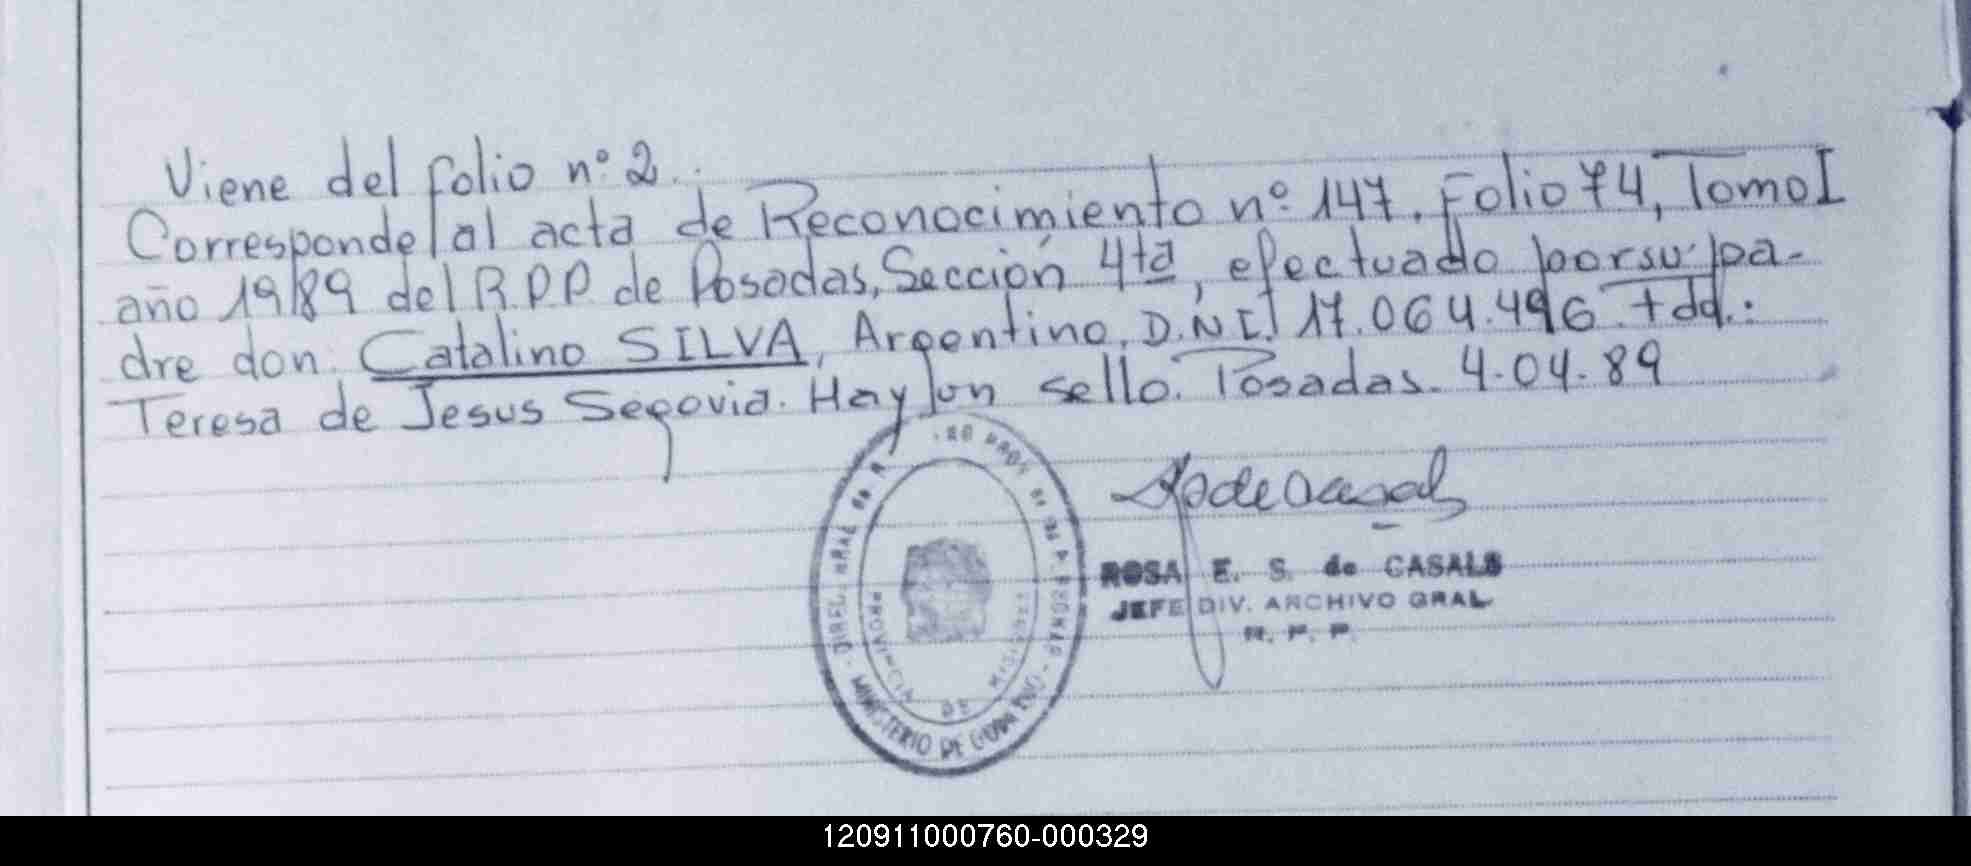 Viene del folio nº 2.
Corresponde al acta de Reconocimiento nº 147. Folio 74, Tomo I
año 1989 del R.P.P. de Posadas, Sección 4ta, efectuado por su pa-
dre don: Catalino SILVA, Argentino, D.N.I. 17.064.496. Tdd.:
Teresa de Jesus Segovia. Hay un sello. Posadas. 4.04.89
ROSA E. S. de CASALS
JEFE DIV. ARCHIVO GRAL
R. P. P.
DIREC. GRAL de
PROVINCIA DE MISIONES
MINISTERIO DE GOBIERNO
120911000760-000329